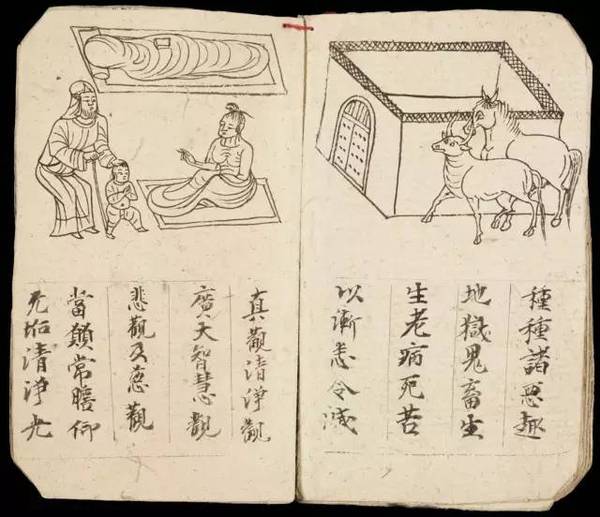 種種諸惡趣
地獄鬼畜生
生老病死苦
以漸悉令滅
真觀清淨觀
廣大智慧觀
悲觀及慈觀
當願常瞻仰
无垢清淨光